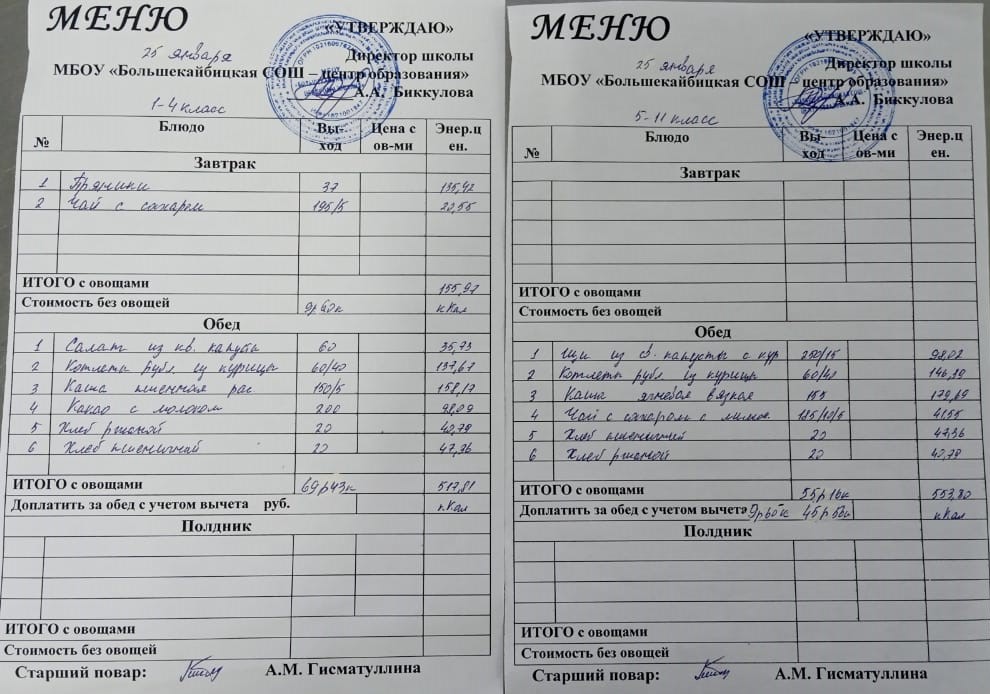 МЕНЮ
«УТВЕРЖДАЮ»
25 января
Директор школы
МБОУ «Большекайбицкая СОШ – центр образования»
А.А. Биккулова
1-4 класс
№ Блюдо Вы-ход Цена с ов-ми Энер.ц ен.
Завтрак
1 Пряники 37 135,42
2 Чай с сахаром 195/5 20,55
ИТОГО с овощами 155,97
Стоимость без овощей 9р60к кКал
Обед
1 Салат из кв. капусты 60 35,73
2 Котлеты рубл. из курицы 60/40 137,67
3 Каша пшенная рас 150/5 158,17
4 Какао с молоком 200 98,09
5 Хлеб ржаной 20 40,79
6 Хлеб пшеничный 20 47,36
ИТОГО с овощами 69р43к 517,81
Доплатить за обед с учетом вычета руб. кКал
Полдник
ИТОГО с овощами
Стоимость без овощей
Старший повар: А.М. Гисматуллина
МЕНЮ
«УТВЕРЖДАЮ»
25 января
Директор школы
МБОУ «Большекайбицкая СОШ центр образования»
А.А. Биккулова
5-11 класс
№ Блюдо Вы-ход Цена с ов-ми Энер.ц ен.
Завтрак
ИТОГО с овощами
Стоимость без овощей
Обед
1 Щи из св. капусты с кур 250/15 98,02
2 Котлеты рубл. из курицы 60/40
3 Каша ячневая вязкая 155 179,69
4 Чай с сахаром с 185/10/5 41,55
5 Хлеб пшеничный 20 47,36
6 Хлеб ржаной 20 40,79
ИТОГО с овощами 55р16к 553,80
Доплатить за обед с учетом вычета 9р60к 45р56к кКал
Полдник
ИТОГО с овощами
Стоимость без овощей
Старший повар: А.М. Гисматуллина